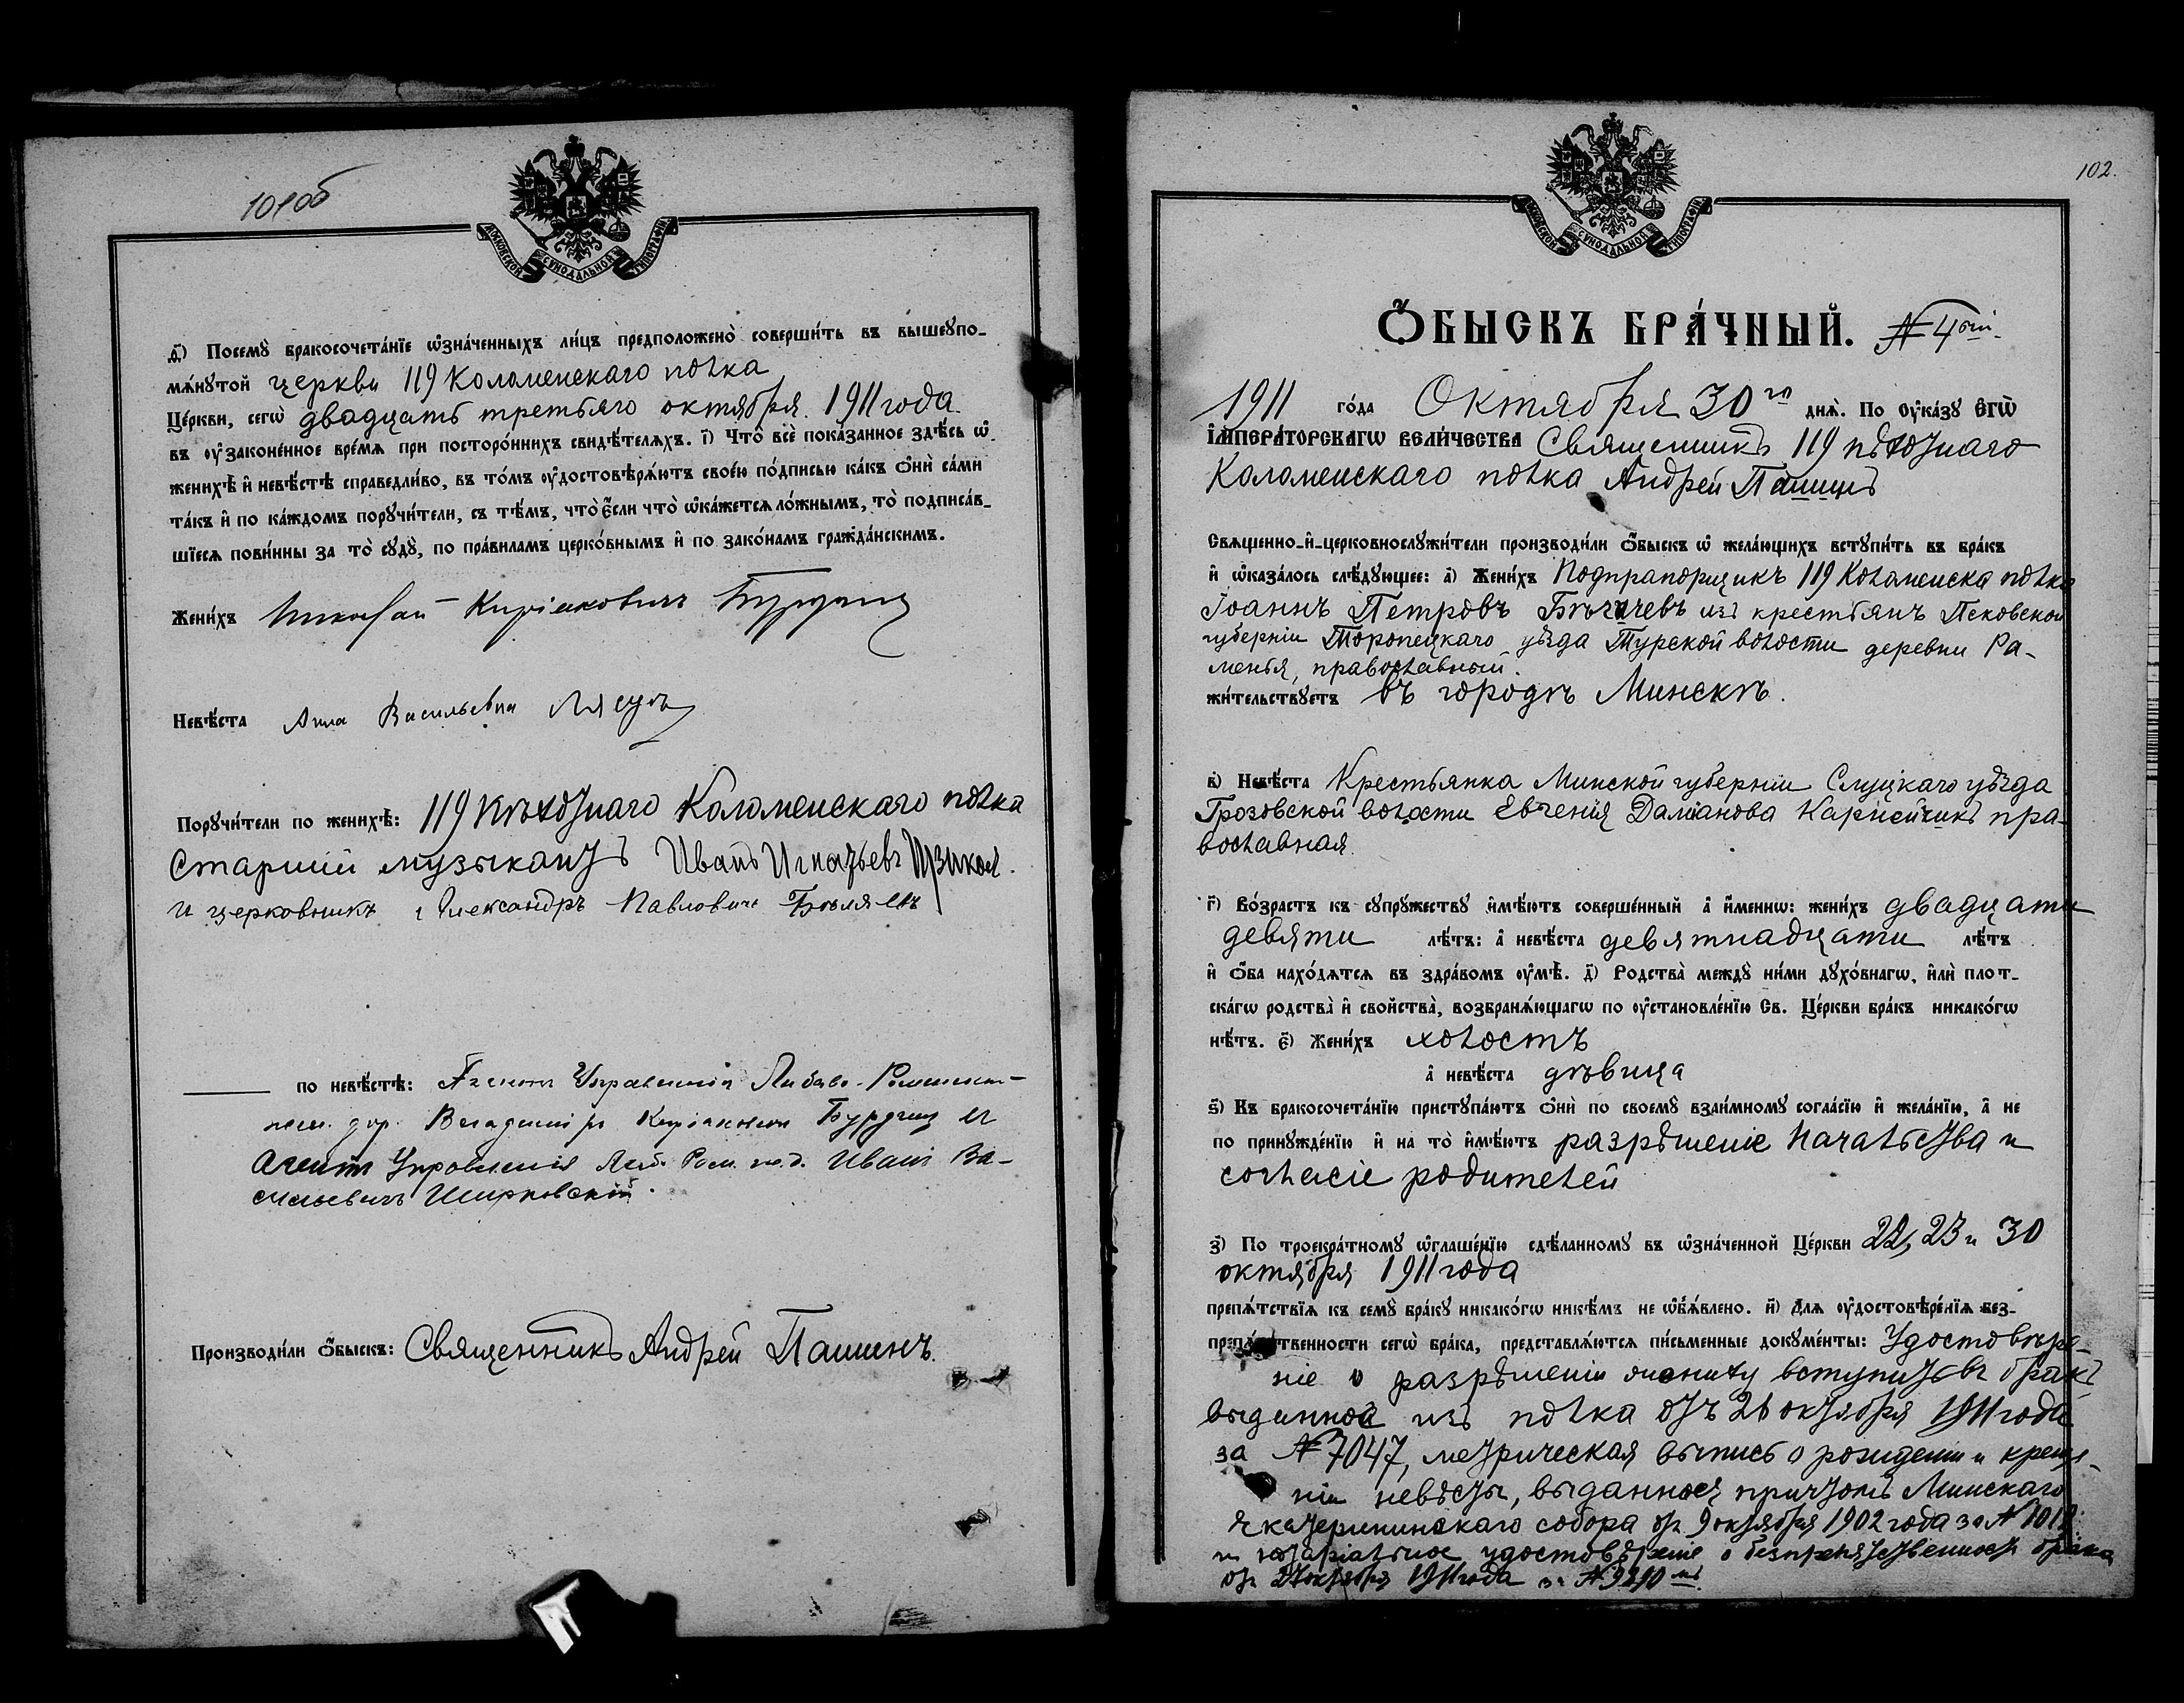 101 об
МОСКОВСКОЙ СѴНОДАЛЬНОЙ ТИПОГРАФІИ
д҃) Посемꙋ̀ бракосочета́нїе ѡ҆зна́ченныхъ ли́цъ предположено̀ соверши́ть въ вышеꙋпо-
мѧ́нꙋтой церкви 119 Коломенскаго полка
Це́ркви, сегѡ̀ двадцать третьяго октября 1911 года
въ ѹ҆зако́ненное вре́мѧ при посторо́ннихъ свидѣ́телѧхъ. і҃) Что̀ всѐ пока́занное здѣ́сь ѡ҆
женихѣ̀ и҆ невѣ́стѣ справедли́во, въ то́мъ ѹ҆достовѣрѧ́ютъ свое́ю по́дписью ка́къ ѻ҆нѝ са́ми
та́къ и҆ по ка́ждомъ порꙋчи́тели, съ тѣ́мъ, что̀ є҆́сли что̀ ѡ҆ка́жетсѧ ло́жнымъ, то̀ подписа́в-
шїесѧ пови́нны за то̀ сꙋдꙋ̀, по пра́виламъ церко́внымъ и҆ по зако́намъ гражда́нскимъ.
Жени́хъ Николай Киріаковичъ Бурдунъ
Невѣ́ста Анна Васильевна
Порꙋчи́тели по женихѣ̀: 119 пѣхотнаго Коломенскаго полка
Старшій музыкантъ Иванъ Игнатьевъ
и церковникъ Александръ Павловичъ Бѣляевъ
по невѣ́стѣ: Агентъ Управленія Либаво-Роменск-
жел. дор. Владиміръ Киріаковичъ Бурдунъ и
Агентъ Управленія Либ. Ром. ж.д. Иванъ Ва-
сильевичъ Ширковскій.
Производи́ли ѻ҆́быскъ: Священникъ Андрей Пашинъ.
102.
МОСКОВСКОЙ СѴНОДАЛЬНОЙ ТИПОГРАФІИ
Ѻ҆́БЫСКЪ БРА́ЧНЫЙ. № 4ый
1911 го́да Октября 30го днѧ̀. По ѹ҆ка́зꙋ Є҆гѡ̀
І҆мпера́торскагѡ вели́чества Священникъ 119 пѣхотнаго
Коломенскаго полка Андрей Пашинъ
Свѧщенно-и҆-церковнослꙋжи́тели производи́ли ѻ҆́быскъ ѡ҆ жела́ющихъ встꙋпи́ть въ бра́къ
и҆ ѡ҆каза́лось слѣ́дꙋющее: а҃) Жени́хъ Подпрапорщикъ 119 Коломенска полка
Іоаннъ Петровъ Бѣгачевъ изъ крестьянъ Псковской
губерніи Торопецкаго уѣзда Турской волости деревни Ра-
менья, православный.
жи́тельствꙋетъ въ городѣ Минскѣ.
в҃) Невѣ́ста Крестьянка Минской губерніи Слуцкаго уѣзда
Грозовской волости Евгенія Даміанова Карнейчикъ пра-
вославная.
г҃) Во́зрастъ къ сꙋпрꙋ́жествꙋ и҆мѣ́ютъ соверше́нный а҆ и҆́меннѡ: жени́хъ двадцати
девяти лѣ́тъ: а҆ невѣ́ста девятнадцати лѣ́тъ
и҆ ѻ҆́ба нахо́дѧтсѧ въ здра́вомъ ѹ҆мѣ̀. д҃) Родства̀ междꙋ̀ ни́ми дꙋхо́внагѡ, и҆лѝ плот-
ска́гѡ родства̀ и҆ свойства̀, возбранѧ́ющагѡ по ѹ҆становле́нїю Св. Це́ркви бра́къ никако́гѡ
нѣ́тъ. є҃) Жени́хъ холостъ
а҆ невѣ́ста дѣвица
ѕ҃) Къ бракосочета́нїю пристꙋпа́ютъ ѻ҆нѝ по своемꙋ̀ взаи́мномꙋ согла́сїю и҆ жела́нїю, а҆ не
по принꙋжде́нїю и҆ на то̀ и҆мѣ́ютъ разрѣшеніе начальства и
согласіе родителей
з҃) По троекра́тномꙋ ѡ҆глаше́нїю сдѣ́ланномꙋ въ ѡ҆зна́ченной Це́ркви 22, 23 и 30
октября 1911 года
препѧ́тствїѧ къ семꙋ̀ бра́кꙋ никако́гѡ никѣ́мъ не ѡ҆б̾ѧ́влено. и҃) Длѧ ѹ҆достовѣре́нїѧ без-
препѧ́тственности сегѡ̀ бра́ка, представлѧ́ютсѧ пи́сьменные докꙋме́нты: Удостовѣре-
ніе о разрѣшеніи жениху вступить въ бракъ,
выданное изъ полка отъ 26 октября 1911 года
за № 7047, метрическая выпись о рожденіи и креще-
ніи невѣсты, выданная причтомъ Минскаго
Екатерининскаго собора отъ 9 октября 1902 года за №
и нотаріальное удостовѣреніе о безпрепятственности брака
отъ октября 1911 года за №